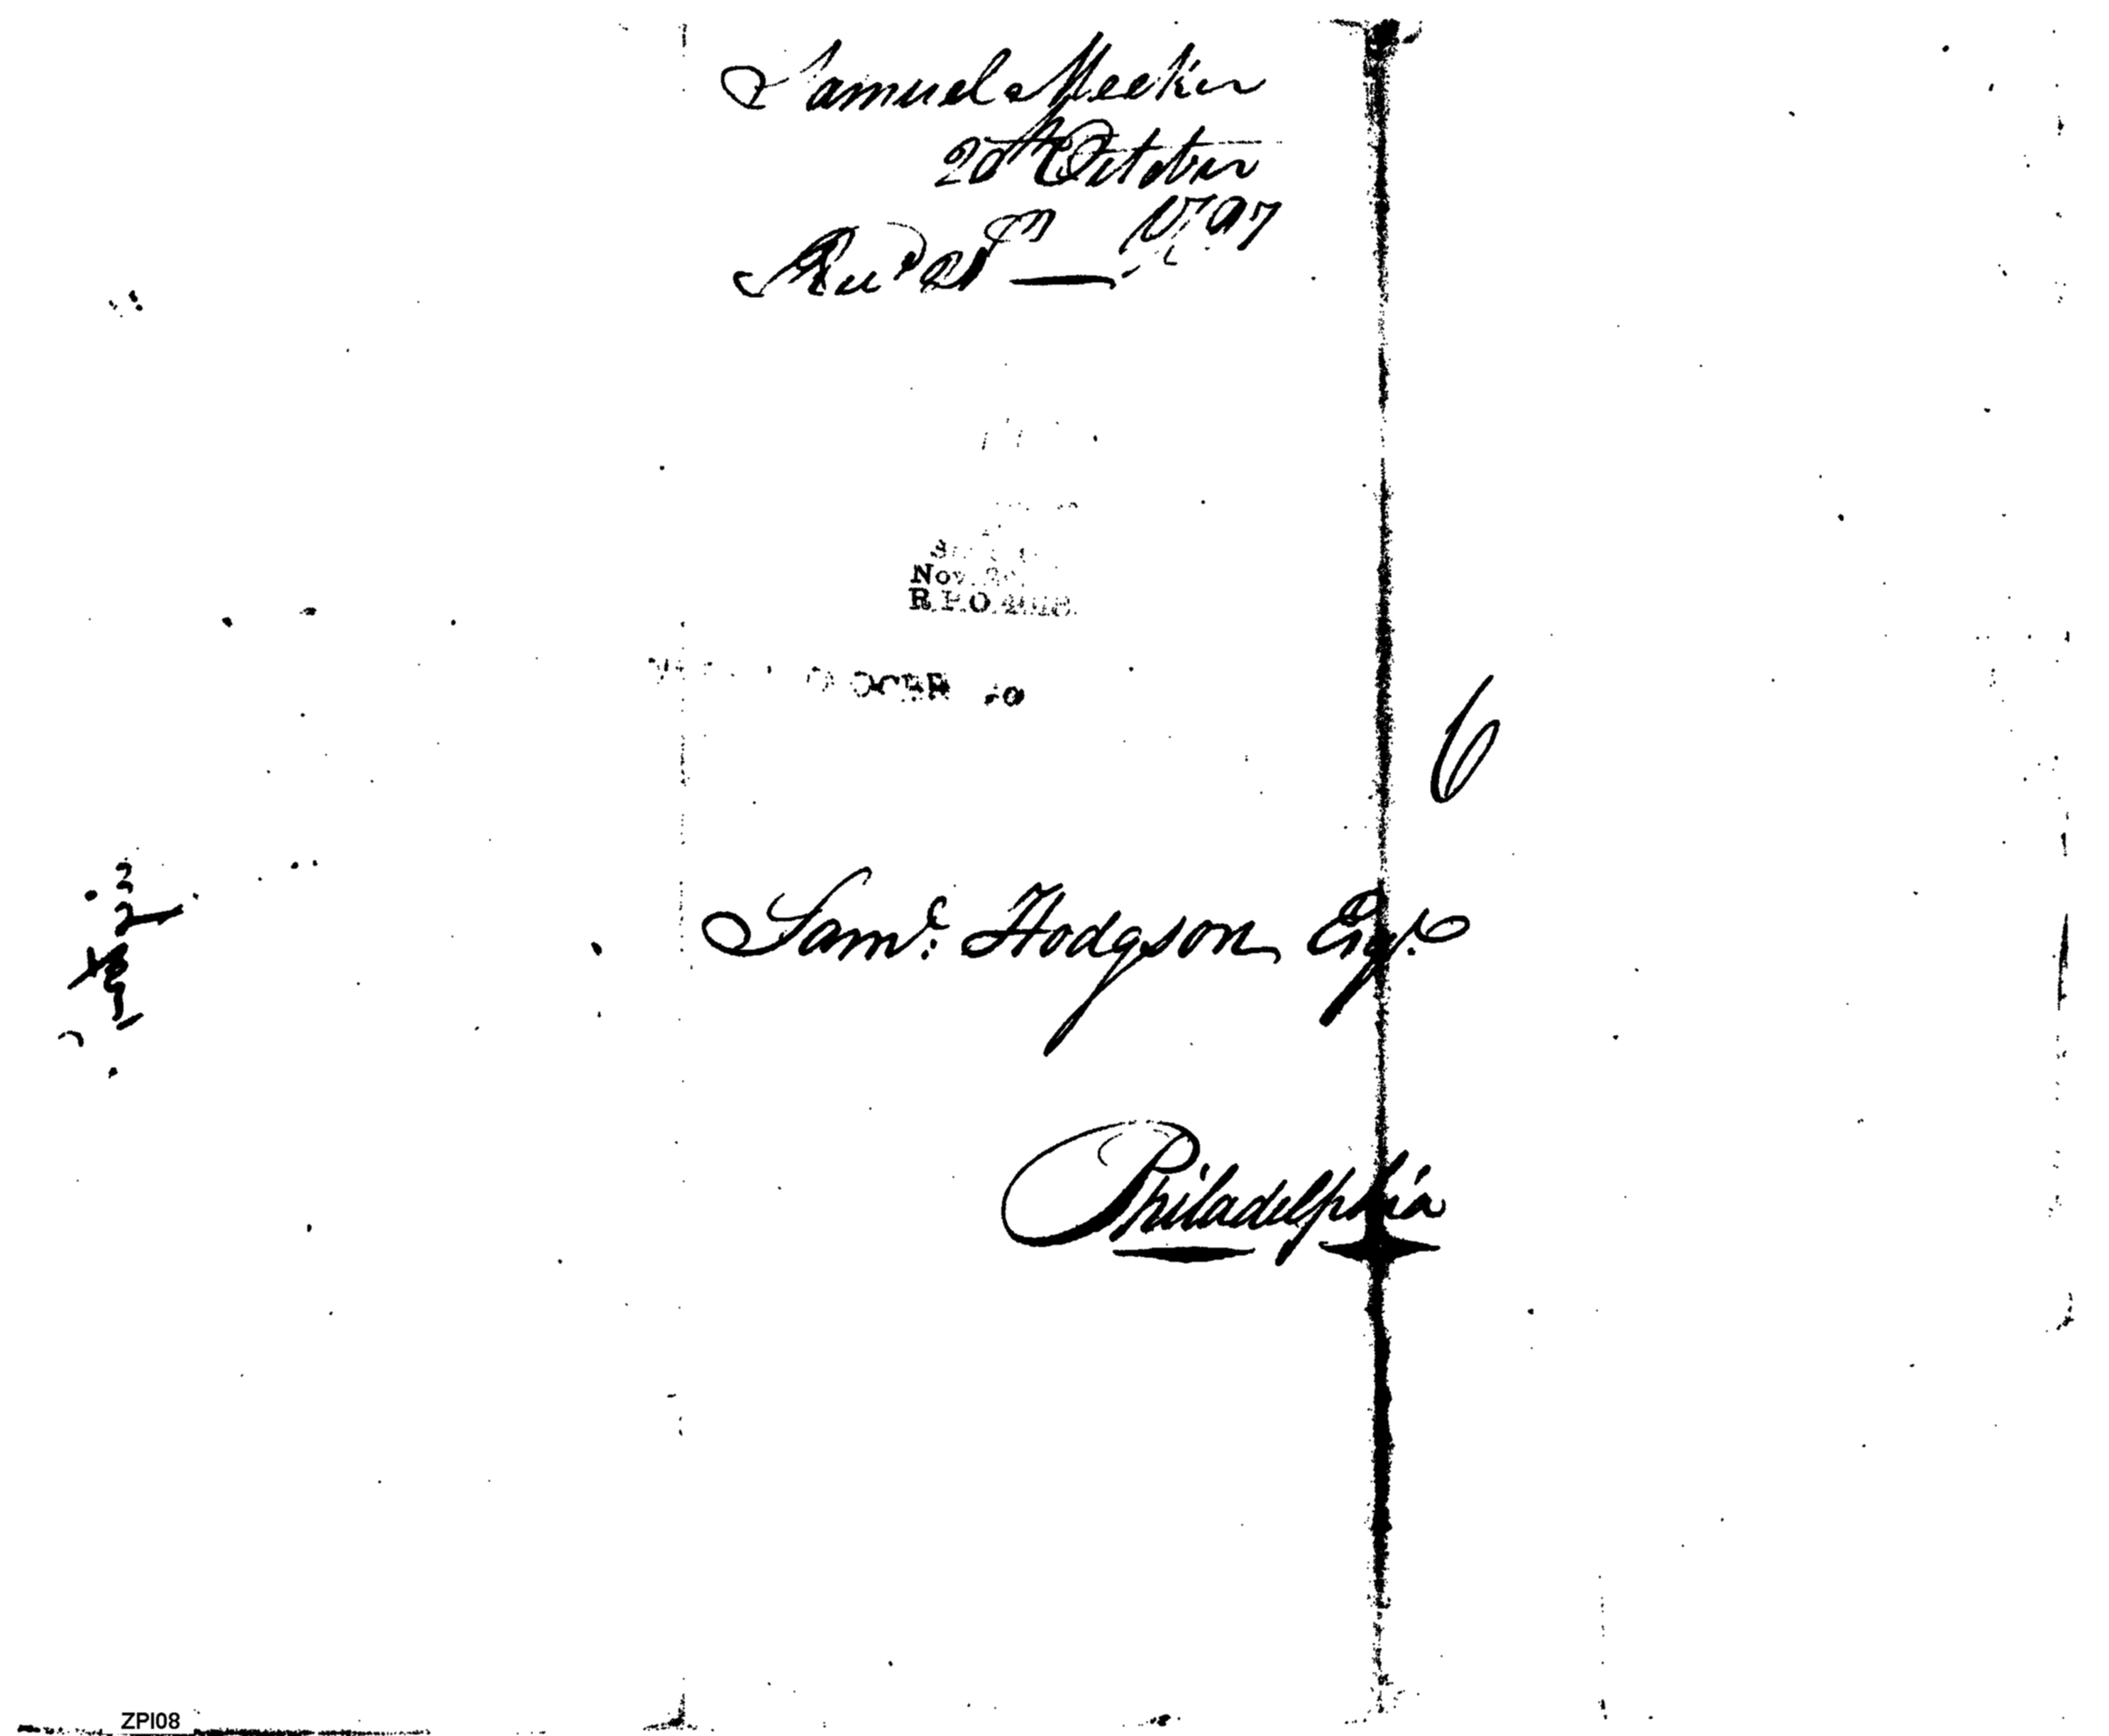 Samuel Meeker
20th October
1797
Rec'd
Nov.
R.P.O.
6
Sam.l Hodgson Esqr.
Philadelphia
ZPI08